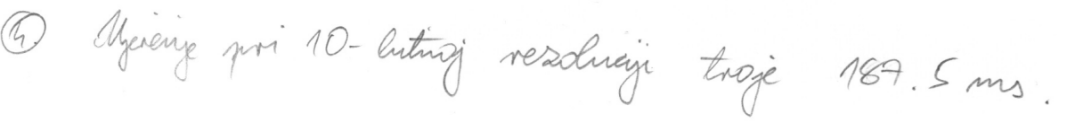 4. Mjerenje pri 10-bitnoj rezoluciji traje 187.5 ms.